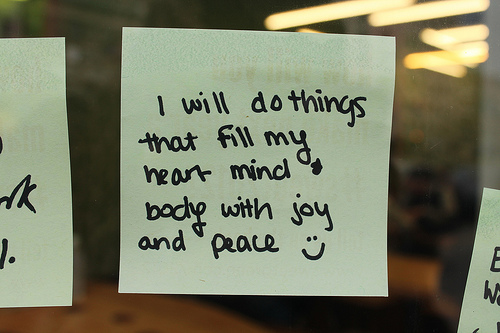 I will do things
that fill my
heart mind &
body with joy
and peace :)
rk